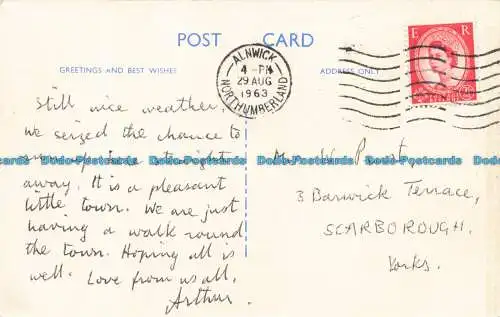 POST CARD
GREETINGS AND BEST WISHES
ADDRESS ONLY
ALNWICK
4 - PM
29 AUG
1963
NORTHUMBERLAND
E R
Still nice weather,
We seized the chance to
straight
away. It is a pleasant
little town. We are just
having a walk round
the town. Hoping all is
well. Love from us all,
Arthur.
3 Barwick Terrace,
SCARBOROUGH.
Yorks.
Dodo-Postcards Dodo-Postcards Dodo-Postcards Dodo-Postcards Dodo-Postcards